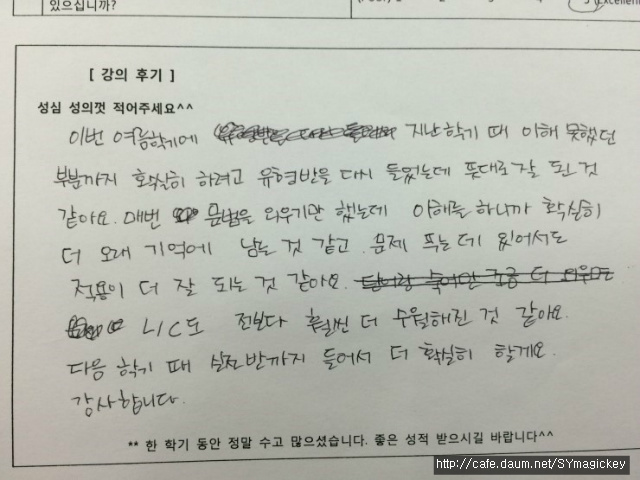 있으십니까?
[ 강의 후기 ]
성심 성의껏 적어주세요^^
이번 여름학기에 지난학기 때 이해 못했던
부분까지 확실히 하려고 유형반을 다시 들었는데 뜻대로 잘 된 것
같아요. 매번 문법을 외우기만 했는데 이해를 하니까 확실히
더 오래 기억에 남는 것 같고 문제 푸는데 있어서도
적용이 더 잘 되는 것 같아요.
L/C도 전보다 훨씬 더 수월해진 것 같아요.
다음 학기 때 실전반까지 들어서 더 확실히 할게요.
감사합니다.
** 한 학기 동안 정말 수고 많으셨습니다. 좋은 성적 받으시길 바랍니다^^
http://cafe.daum.net/SYmagickey